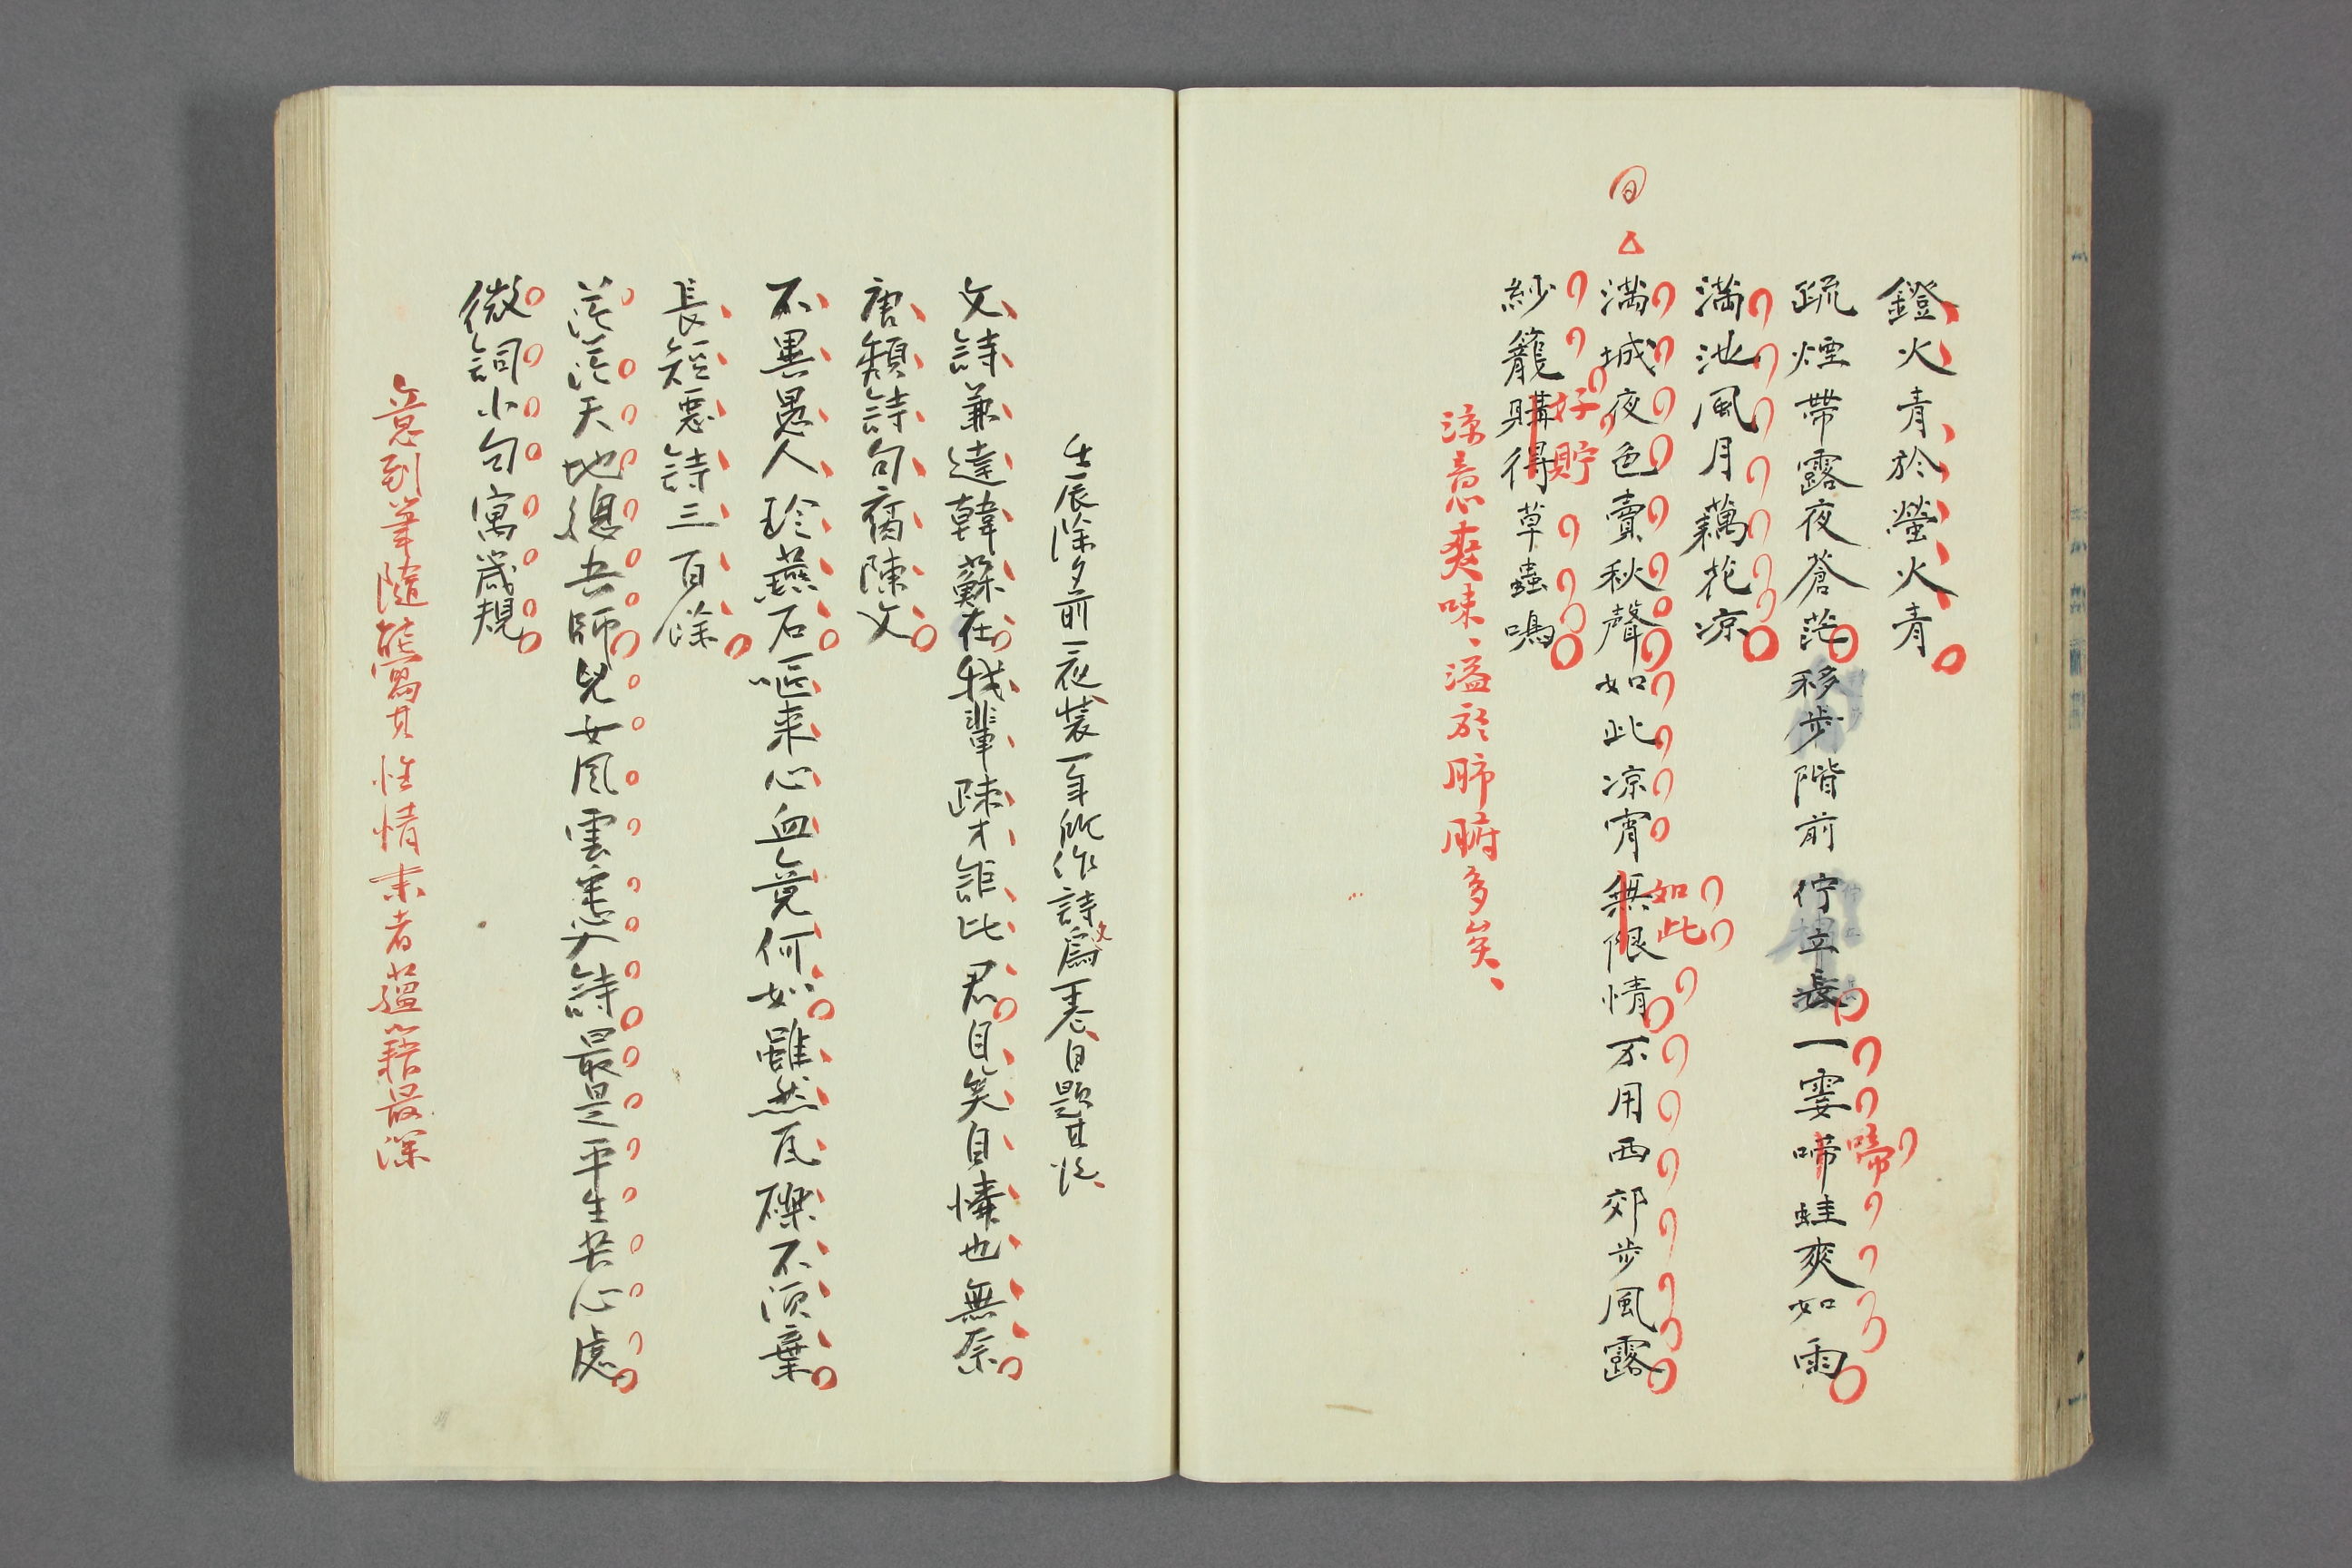 鐙火青於螢火青
疏煙帶露夜蒼茫移步階前佇立長一霎啼蛙爽如雨
啼
滿池風月藕花凉
同
滿城夜色賣秋聲如此凉宵無限情不用西郊步風露
如此
紗籠購得草蟲鳴
好貯
涼意爽味溢於肺腑多矣
壬辰除夕前一夜装一年所作詩為一卷自題其後
文
文詩兼達韓蘇在我輩疎才詎比君自笑自憐也無奈
唐類詩句腐陳文
不異愚人珍燕石嘔来心血竟何如雖然瓦礫不須棄
長短惡詩三百餘
茫茫天地總吾師兒女風雲悉入詩最是平生苦心處
微詞小句寓箴規
意到筆隨能寫其性情末者蘊籍最深